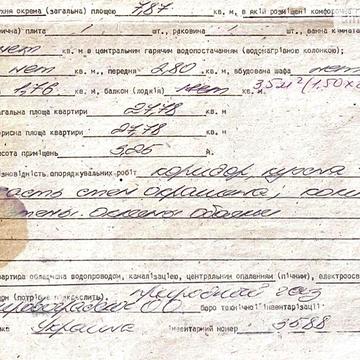 кухня окрема (загальна) площею 7,87 кв. м, в якій розміщені комфорочна
плита шт., раковина шт., ванна кімната
нет кв. м в центральним гарячим водопостачанням (водонагрівною колонкою);
нет кв. м, передня 2,80 кв. м, вбудована шафа нет
1,76 кв. м, балкон (лоджія) нет 35м² (1.50х
загальна площа квартири 27,78 кв. м
корисна площа квартири 27,78 кв. м
висота приміщень 3,25 м.
опоряджувальних робіт коридор, кухня
часть стен окрашена,
стены оклеены обоями
квартира обладнана водопроводом, каналізацією, центральним опаленням (пічним),
(потрібне підкреслить), природный газ
Кировоградское ОО бюро технічної інвентаризації
Украина Інвентарний номер 3588